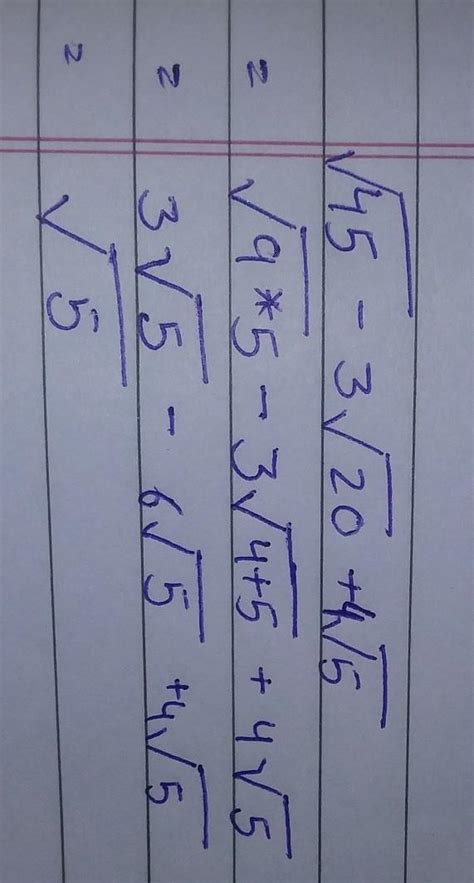 √45 - 3√20 + 4√5
= √9*5 - 3√4+5 + 4√5
= 3√5 - 6√5 + 4√5
= √5